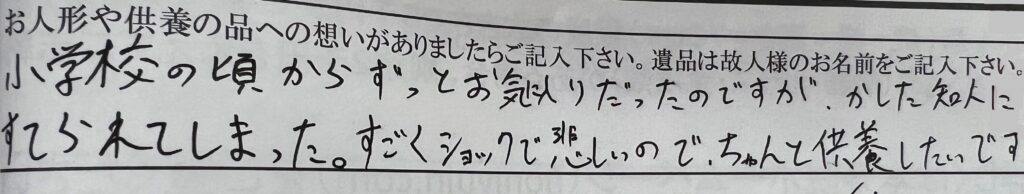 お人形や供養の品への想いがありましたらご記入下さい。遺品は故人様のお名前をご記入下さい。
小学校の頃からずっとお気に入りだったのですが、かした知人に
すてられてしまった。すごくショックで悲しいので、ちゃんと供養したいです